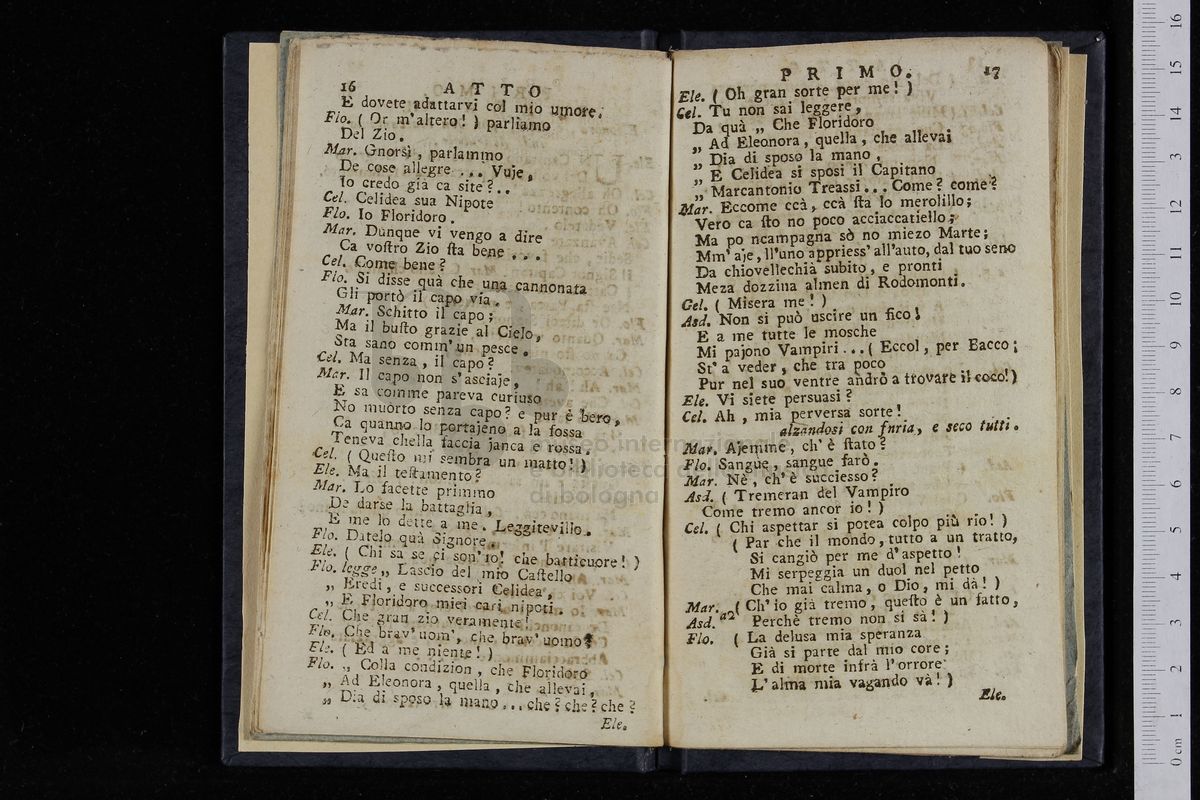 16 ATTO
E dovete adattarvi col mio umore.
Flo. ( Or m'altero! ) parliamo
Del Zio.
Mar. Gnorsì, parlammo
De cose allegre ... Vuje,
Io credo già ca site?..
Cel. Celidea sua Nipote
Flo. Io Floridoro.
Mar. Dunque vi vengo a dire
Ca voſtro Zio ſta bene ...
Cel. Come bene?
Flo. Si disse quà che una cannonata
Gli portò il capo via.
Mar. Schitto il capo;
Ma il buſto grazie al Cielo,
Sta sano comm'un pesce.
Cel. Ma senza, il capo?
Mar. Il capo non s'asciaje,
E sa comme pareva curiuso
No muorto senza capo? e pur è bero,
Ca quanno lo portajeno a la fossa
Teneva chella faccia janca e rossa.
Cel. ( Queſto mi sembra un matto!)
Ele. Ma il teſtamento?
Mar. Lo facette primmo
De darse la battaglia,
E me lo dette a me. Leggitevillo.
Flo. Datelo quà Signore.
Ele. ( Chi sa se ci son'io! che batticuore! )
Flo. legge „ Lascio del mio Caſtello
„ Eredi, e successori Celidea,
„ E Floridoro miei cari nipoti.
Cel. Che gran zio veramente!
Flo. Che brav'uom', che brav'uomo!
Ele. ( Ed a me niente! )
Flo. „ Colla condizion, che Floridoro
„ Ad Eleonora, quella, che allevai,
„ Dia di sposo la mano ... che? che? che?
Ele.
PRIMO. 17
Ele. ( Oh gran sorte per me! )
Cel. Tu non sai leggere,
Da quà „ Che Floridoro
„ Ad Eleonora, quella, che allevai
„ Dia di sposo la mano,
„ E Celidea si sposi il Capitano
„ Marcantonio Treassi ... Come? come?
Mar. Eccome ccà, ccà ſta lo merolillo;
Vero ca ſto no poco acciaccatiello;
Ma po ncampagna sò no miezo Marte;
Mm'aje, ll'uno appriess'all'auto, dal tuo seno
Da chiovellechià subito, e pronti
Meza dozzina almen di Rodomonti.
Cel. ( Misera me! )
Asd. Non si può uscire un fico!
E a me tutte le mosche
Mi pajono Vampiri ... ( Eccol, per Bacco;
St'a veder, che tra poco
Pur nel suo ventre andrò a trovare il coco!)
Ele. Vi siete persuasi?
Cel. Ah, mia perversa sorte!
alzandosi con furia, e seco tutti.
Mar. Ajemme, ch'è ſtato?
Flo. Sangue, sangue farò.
Mar. Nè, ch'è succiesso?
Asd. ( Tremeran del Vampiro
Come tremo ancor io! )
Cel. ( Chi aspettar si potea colpo più rio! )
( Par che il mondo, tutto a un tratto,
Si cangiò per me d'aspetto!
Mi serpeggia un duol nel petto
Che mai calma, o Dio, mi dà! )
Mar. ( Ch'io già tremo, queſto è un fatto,
Asd. a2 Perchè tremo non si sà! )
Flo. ( La delusa mia speranza
Già si parte dal mio core;
E di morte infrà l'orrore
L'alma mia vagando và! )
Ele.
museo internazionale
e biblioteca della musica
di bologna
0 cm 1 2 3 4 5 6 7 8 9 10 11 12 13 14 15 16